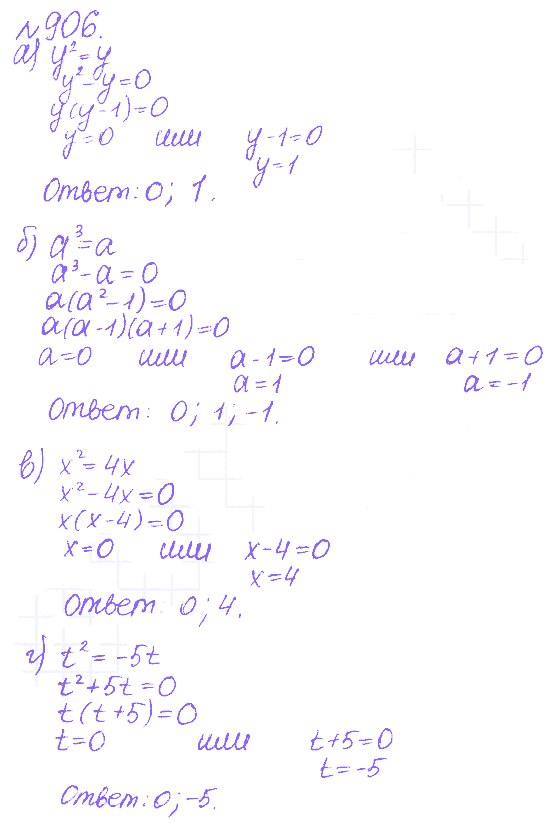 №906.
а) y² = y
y² - y = 0
y(y - 1) = 0
y = 0 или y - 1 = 0
y = 1
Ответ: 0; 1.
б) a³ = a
a³ - a = 0
a(a² - 1) = 0
a(a - 1)(a + 1) = 0
a = 0 или a - 1 = 0 или a + 1 = 0
a = 1 a = -1
Ответ: 0; 1; -1.
в) x² = 4x
x² - 4x = 0
x(x - 4) = 0
x = 0 или x - 4 = 0
x = 4
Ответ: 0; 4.
г) t² = -5t
t² + 5t = 0
t(t + 5) = 0
t = 0 или t + 5 = 0
t = -5
Ответ: 0; -5.